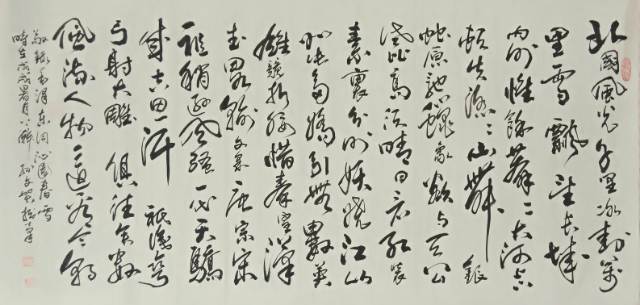 北國風光千里冰封萬
里雪飄望長城
内外惟餘莽〻大河上
頓失滔〻山舞銀
蛇原馳蠟象欲与天公
试比高須晴日看红装
素裹分外妖嬈江山
如此多嬌引無數英
雄競折腰惜秦皇漢
武略輸文采唐宗宋
祖稍逊風騷一代天驕
成吉思汗祇識彎
弓射大雕俱往矣數
風流人物還看今朝
敬錄毛澤東词沁園春雪
時在戊戌暑月